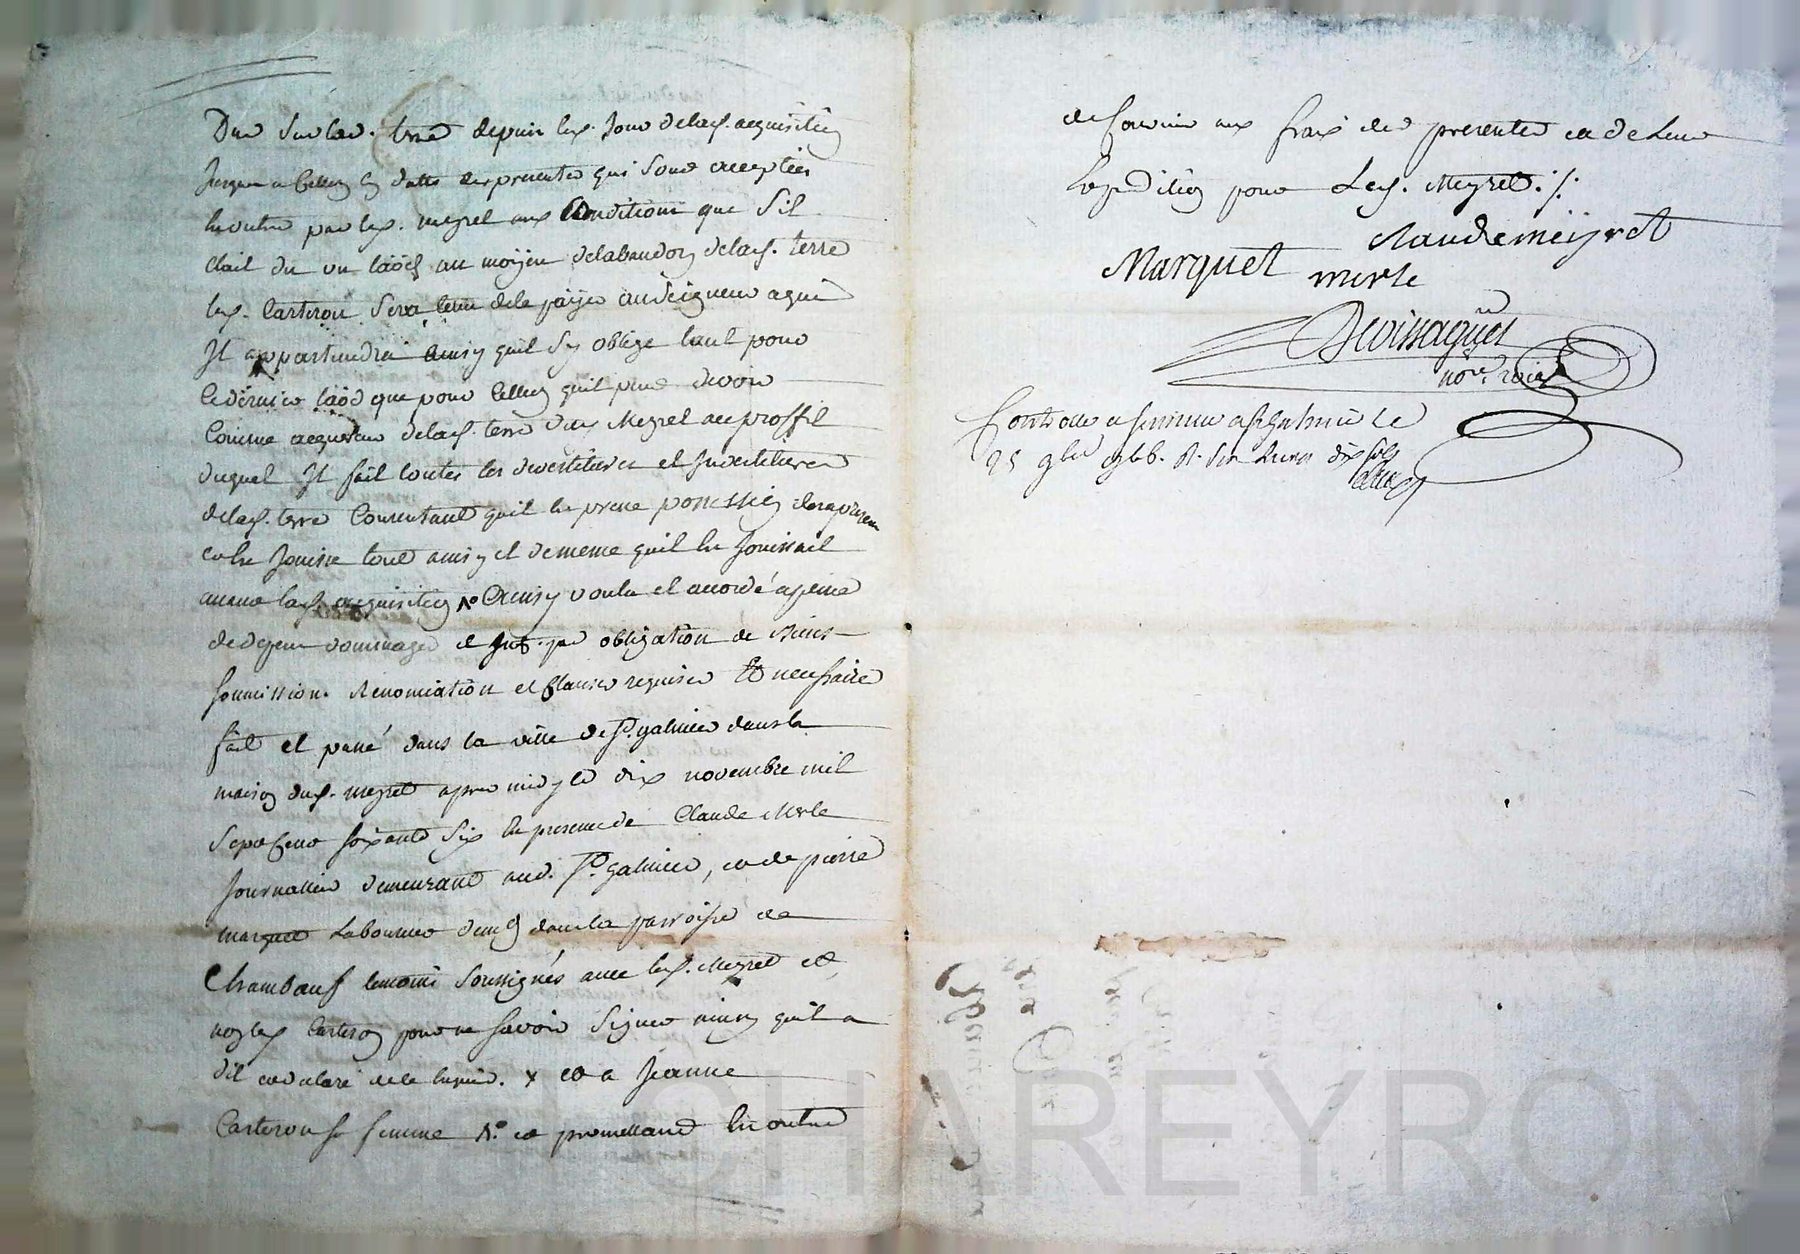 Due sur lad. terre depuis led. Jour delad. acquisition
Jusques a Celluy en datte des presentes qui sont acceptées
En outre par led. meyret aux Conditions que S'il
Etait du un laod au moÿen delabandon delad. terre
led. Carteron Sera tenu dele paÿer au Seigneur a qui
Il appartiendra ainsy quil Sy oblige tant pour
Ce dernier laod que pour Celluy quil peut devoir
Comme acquereur delad. terre dud. Meyret au proffit
duquel Il fait toutes les devestitures et Investitures
delad. terre Consentant quil en prene possession des apresent
et en Jouisse tout ainsy et de meme quil en Jouissait
avant lad. acquisition Ainsy voulu et accordé a peine
de depens dommages et Int. par obligation de Biens
soumission. Renonciation et Clauses requises Et necessaire
fait et passé dans la ville de St. galmier dans la
maison dud. meyret apres midy le dix novembre mil
Sept Cent soixante Six En presence de Claude Merle
Journallier demeurant aud. St. Galmier, et de pierre
marquet Laboureur dem.t dans la parroisse de
Chambœuf temoins Soussignés avec led. Meyret et
non led. Carteron pour ne Savoir Signer ainsy quil a
dit et declaré de ce enquis. x et a Jeanne
Carteron Sa femme et promettant En outre
de fournir aux frais des presentes et de Leur
Expedition pour Led. Meyret ./.
claude meÿret
Marquet merle
no.re roial
Controllé a St Galmier Le
25 9bre 1766. R. Six Livres dix sols